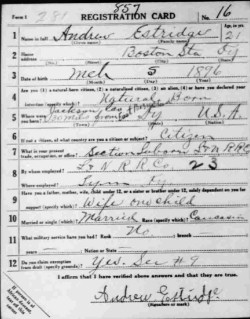 Form 1 281 557 REGISTRATION CARD No. 16
1 Name in full Andrew Estridge Age, in yrs. 21
2 Home address Boston Sta Ky
3 Date of birth Mch 5 1896
4 Are you (1) a natural-born citizen, (2) a naturalized citizen, (3) an alien, (4) or have you declared your intention (specify which)? Natural Born
5 Where were you born? Ky U.S.A.
6 If not a citizen, of what country are you a citizen or subject? Citizen
7 What is your present trade, occupation, or office? Section
8 By whom employed? L & N. R R Co. 23
Where employed? Ky
9 Have you a father, mother, wife, child under 12, or a sister or brother under 12, solely dependent on you for support (specify which)? Wife one Child
10 Married or single (which)? Married Race (specify which)? Caucasian
11 What military service have you had? Rank No
years Nation or State
12 Do you claim exemption from draft (specify grounds)? Yes. See #9
I affirm that I have verified above answers and that they are true.
Andrew Estridge
(Signature or mark)